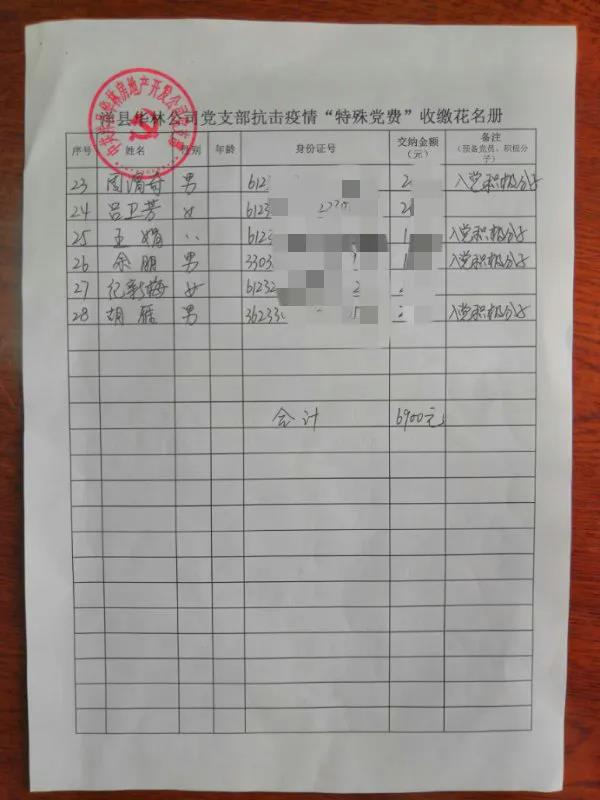 洋县华林公司党支部抗击疫情“特殊党费”收缴花名册
序号 姓名 性别 年龄 身份证号 交纳金额（元） 备注（预备党员、积极分子）
23 周渭奇 男 612 2 入党积极分子
24 吕卫芳 女 6123 2
25 王娟 〃 6123 1 入党积极分子
26 余鹏 男 3303 1 入党积极分子
27 纪彩梅 女 61232 2
28 胡雁 男 36233 5 入党积极分子
合计 6900元